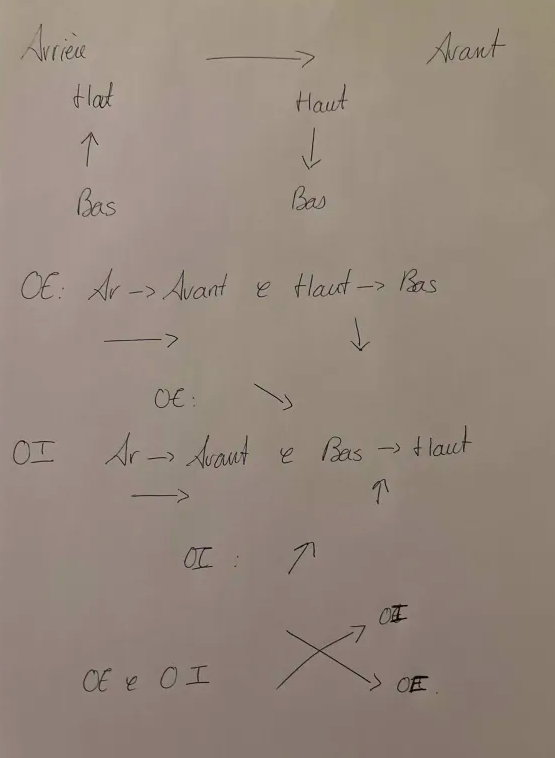 Arrière → Avant
Haut Haut
↑ ↓
Bas Bas
OE: Ar -> Avant e Haut -> Bas
→ ↓
OE: ↘
OI Ar -> Avant e Bas -> Haut
→ ↑
OI : ↗
OI
OE e OI OE.